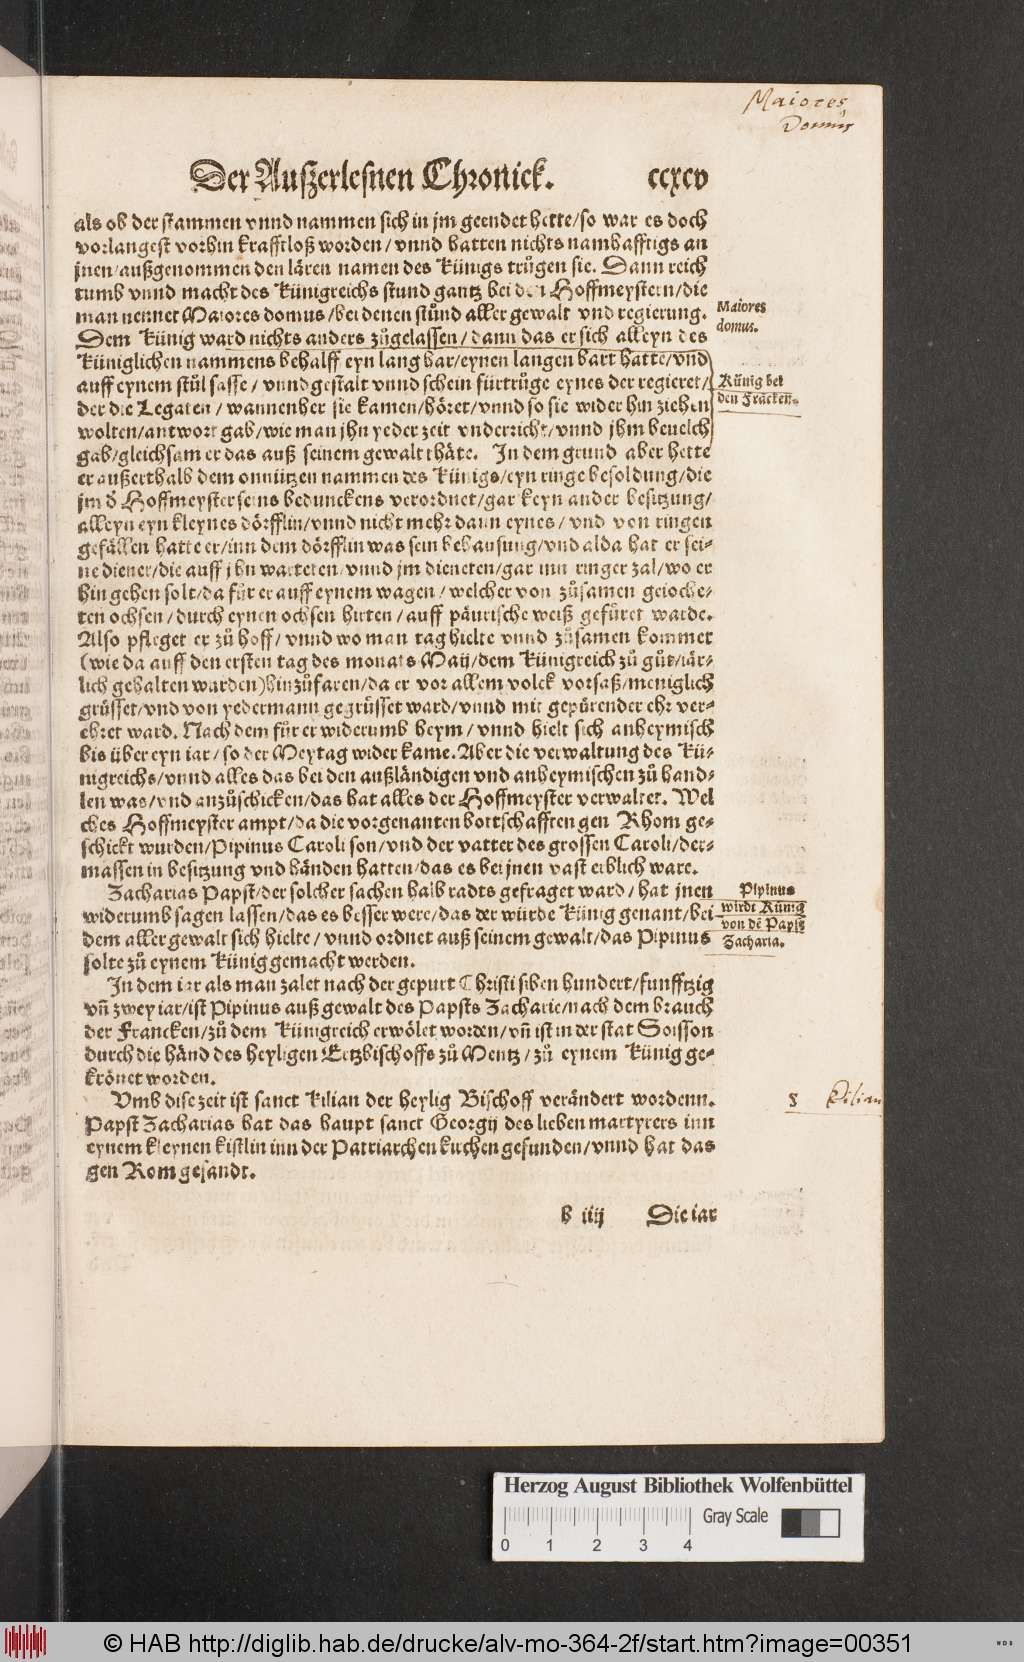 Maiores
Domus
Der Auszerlesnen Chronick. ccxcv
als ob der stammen vnnd nammen sich in jm geendet hette/so war es doch
vorlangest vorhin krafftloß worden/vnnd hatten nichts namhafftigs an
jnen/außgenommen den lären namen des Künigs trůgen sie. Dann reich
tumb vnnd macht des Künigreichs stund gantz bei den Hoffmeystern/die
man nennet Maiores domus/bei denen stůnd aller gewalt vnd regierung.
Maiores
domus.
Dem Künig ward nichts anders zůgelassen/dann das er sich alleyn des
Küniglichen nammens behalff eyn lang har/eynen langen bart hatte/vnd
auff eynem stůl sasse/vnnd gestalt vnnd schein fürtrůge eynes der regieret/
Künig bei
den Fräcken.
der die Legaten/wannenher sie kamen/höret/vnnd so sie wider hin ziehen
wolten/antwort gab/wie man jhn yeder zeit vnderricht/vnnd jhm beuelch
gab/gleichsam er das auß seinem gewalt thäte. In dem grund aber hette
er außerthalb dem onnützen nammen des Künigs/eyn ringe besoldung/die
jm d̊ Hoffmeyster seins bedunckens verordnet/gar keyn ander besitzung/
alleyn eyn kleynes dörfflin/vnnd nicht mehr dann eynes/vnd von ringen
gefällen hatte er/inn dem dörfflin was sein behausung/vnd alda hat er sei-
ne diener/die auff jhn warteten/vnnd jm dieneten/gar inn ringer zal/wo er
hin gehen solt/da für er auff eynem wagen/welcher von zůsamen geioche-
ten ochsen/durch eynen ochsen hirten/auff päurische weiß gefůret warde.
Also pfleget er zů hoff/vnnd wo man tag hielte vnnd zůsamen kommet
(wie da auff den ersten tag des monats Maij/dem Künigreich zů gůt/iär-
lich gehalten warden)hinzůfaren/da er vor allem volck vorsaß/meniglich
grüsset/vnd von yedermann gegrüsset ward/vnnd mit gepürender ehr ver-
ehret ward. Nach dem für er widerumb heym/vnnd hielt sich anheymisch
bis über eyn iar/so der Meytag wider kame. Aber die verwaltung des Kü-
nigreichs/vnnd alles das bei den außländigen vnd anheymischen zů hand-
len was/vnd anzůschicken/das hat alles der Hoffmeyster verwaltet. Wel
ches Hoffmeyster ampt/da die vorgenanten bottschafften gen Rhom ge-
schickt wurden/Pipinus Caroli son/vnd der vatter des grossen Caroli/der-
massen in besitzung vnd händen hatten/das es bei jnen vast erblich ware.
Zacharias Papst/der solcher sachen halb radts gefraget ward/hat jnen
Pipinus
wirdt Künig
von dē Papst
Zacharia.
widerumb sagen lassen/das es besser were/das der würde Künig genant/bei
dem aller gewalt sich hielte/vnnd ordnet auß seinem gewalt/das Pipinus
solte zů eynem Künig gemacht werden.
In dem iar als man zalet nach der gepurt Christi siben hundert/funfftzig
vñ zwey iar/ist Pipinus auß gewalt des Papsts Zacharie/nach dem brauch
der Francken/zů dem Künigreich erwölet worden/vñ ist in der stat Soisson
durch die händ des heyligen Ertzbischoffs zů Mentz/zů eynem Künig ge-
krönet worden.
Vmb dise zeit ist sanct Kilian der heylig Bischoff verändert wordenn.
S Kilian
Papst Zacharias hat das haupt sanct Georgij des lieben martyrers inn
eynem kleynen kistlin inn der Patriarchen kirchen gefunden/vnnd hat das
gen Rom gesandt.
b iiij Die iar
Herzog August Bibliothek Wolfenbüttel
Gray Scale
0 1 2 3 4
© HAB http://diglib.hab.de/drucke/alv-mo-364-2f/start.htm?image=00351